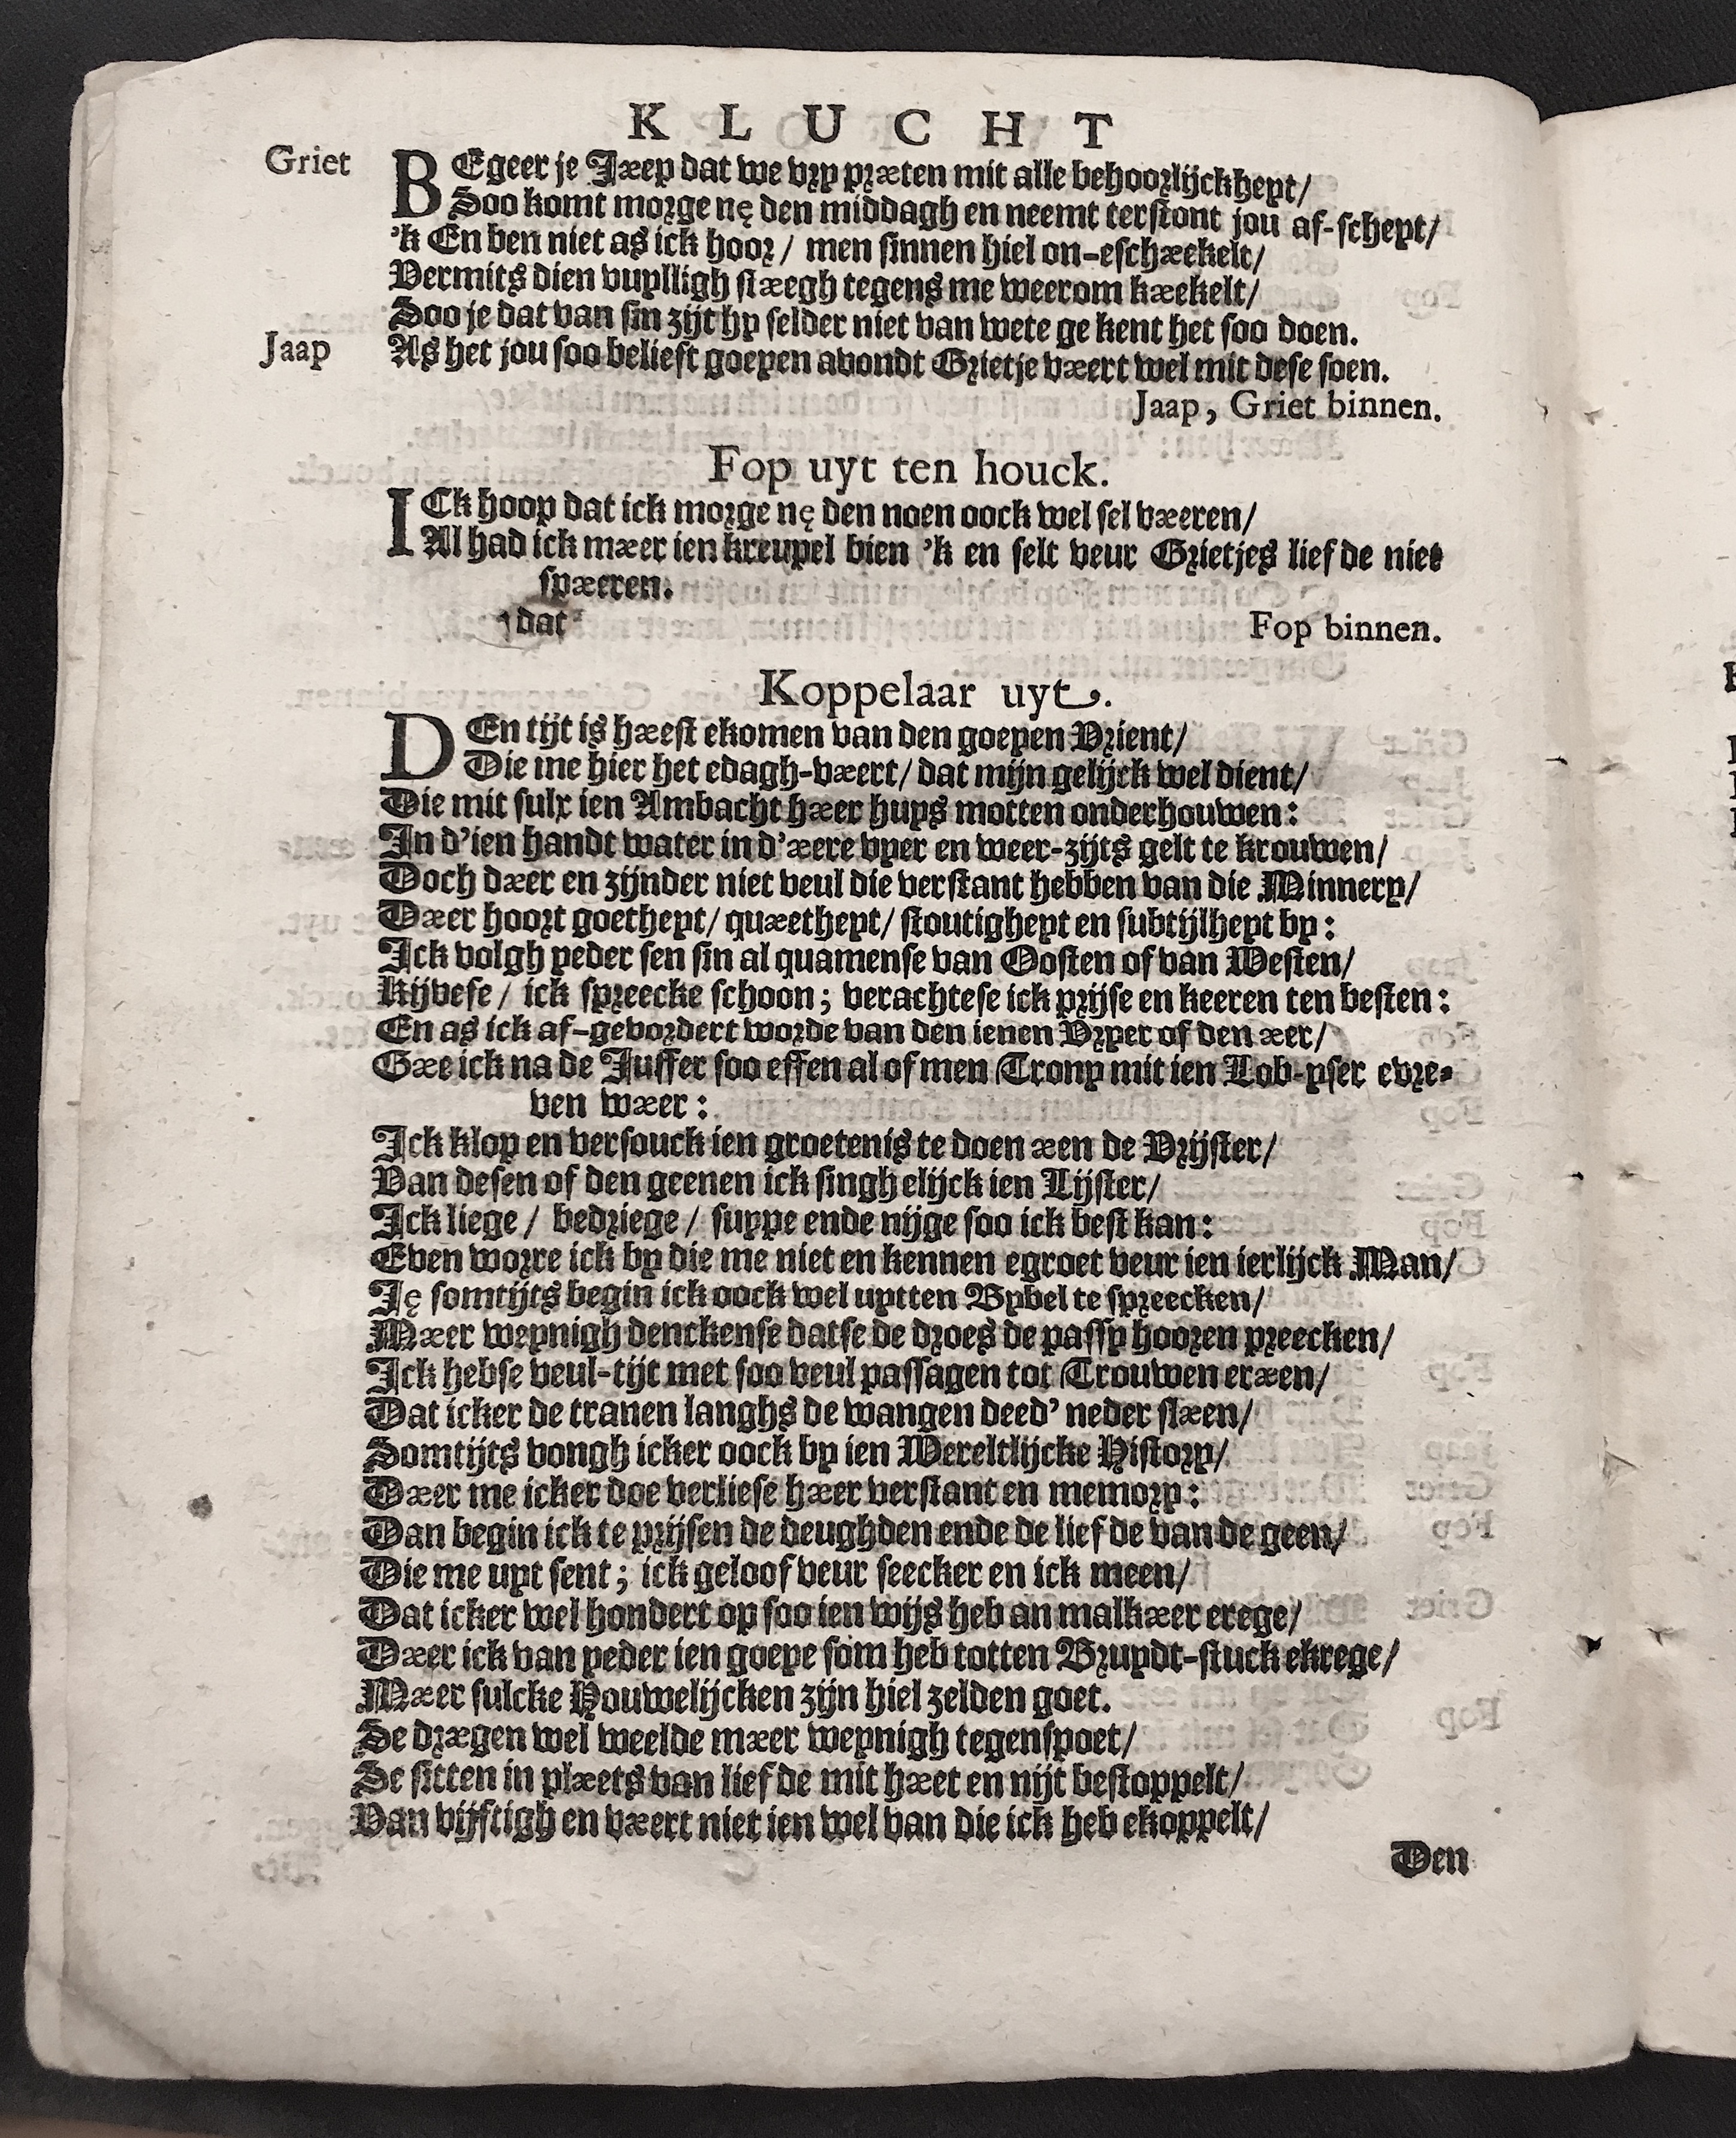 KLUCHT
Griet BEgeer je Jæep dat we vry præten mit alle behoorlijckheyt/
Soo komt morge nę den middagh en neemt terstont jou af-scheyt/
'k En ben niet as ick hoor/ men sinnen hiel on-eschæekelt/
Vermits dien vuylligh stæegh tegens me weerom kæekelt/
Soo je dat van sin zijt hy selder niet van wete ge kent het soo doen.
Jaap As het jou soo belieft goeyen avondt Grietje væert wel mit dese soen.
Jaap, Griet binnen.
Fop uyt ten houck.
ICk hoop dat ick morge nę den noen oock wel sel væeren/
Al had ick mæer ien kreupel bien 'k en selt veur Grietjes liefde niet
spæeren.
dat
Fop binnen.
Koppelaar uyt.
DEn tijt is hæest ekomen van den goeyen Vrient/
Die me hier het edagh-væert/ dat mijn gelijck wel dient/
Die mit sulx ien Ambacht hæer huys motten onderhouwen:
In d'ien handt water in d'æere vyer en weer-zijts gelt te krouwen/
Doch dæer en zijnder niet veul die verstant hebben van die Minnery/
Dæer hoort goetheyt/ quæetheyt/ stoutigheyt en subtijlheyt by:
Ick volgh yeder sen sin al quamense van Oosten of van Westen/
Kijvese/ ick spreecke schoon; verachtese ick prijse en keeren ten besten:
En as ick af-gevordert worde van den ienen Vryer of den æer/
Gæe ick na de Juffer soo effen al of men Trony mit ien Lob-yser evre-
ven wæer:
Ick klop en versouck ien groetenis te doen æen de Vrijster/
Van desen of den geenen ick singh elijck ien Lijster/
Ick liege/ bedriege/ suype ende nijge soo ick best kan:
Even worre ick by die me niet en kennen egroet veur ien ierlijck Man/
Ję somtijts begin ick oock wel uytten Bybel te spreecken/
Mæer weynigh denckense datse de droes de passy hooren preecken/
Ick hebse veul-tijt met soo veul passagen tot Trouwen eræen/
Dat icker de tranen langhs de wangen deed' neder slæen/
Somtijts vongh icker oock by ien Wereltlijcke History/
Dæer me icker doe verliese hæer verstant en memory:
Dan begin ick te prijsen de deughden ende de liefde van de geen/
Die me uyt sent; ick geloof veur seecker en ick meen/
Dat icker wel hondert op soo ien wijs heb an malkæer erege/
Dæer ick van yeder ien goeye som heb totten Bruydt-stuck ekrege/
Mæer sulcke Houwelijcken zijn hiel zelden goet.
Se drægen wel weelde mæer weynigh tegenspoet/
Se sitten in plæets van liefde mit hæet en nijt bestoppelt/
Van vijftigh en væert niet ien wel van die ick heb ekoppelt/
Den